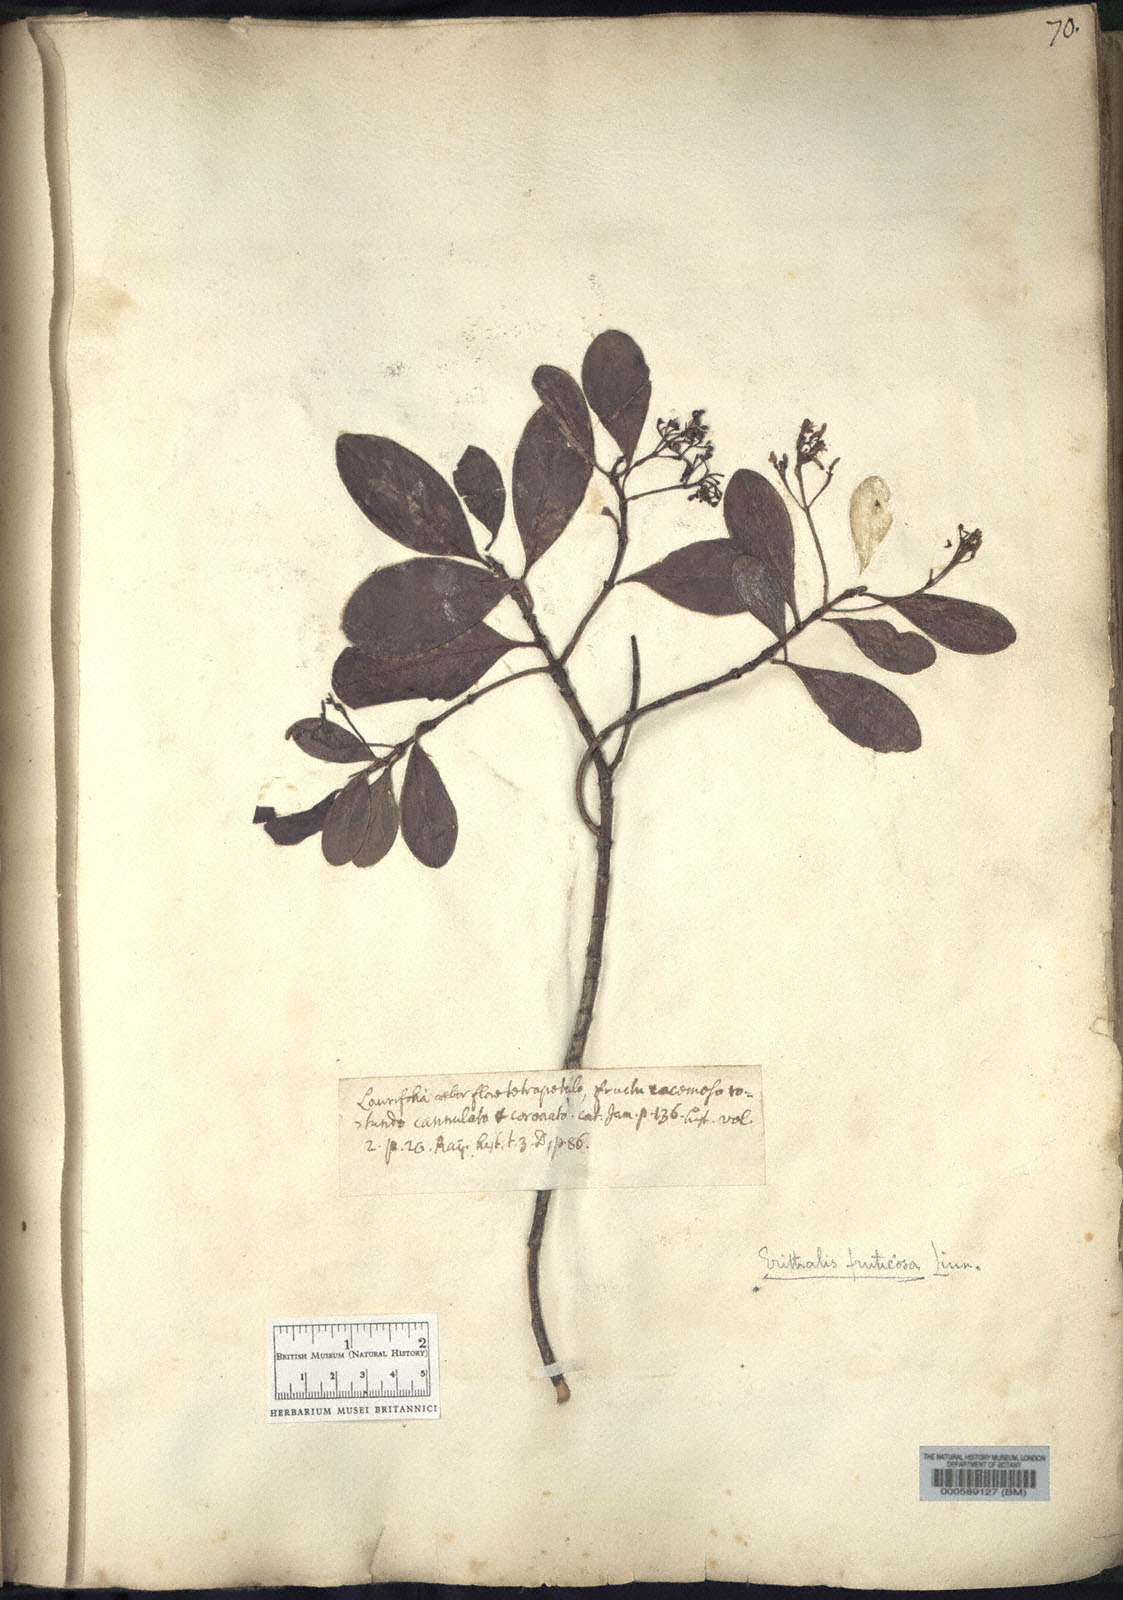 70.
Laurifolia arbor flore tetrapetalo, fructu racemoso ro-
tundo cannulato & coronato. cat. Jam. p. 136. hist. vol.
2. p. 20. Raij. hist. t. 3. D, p. 86.
Erithalis fruticosa Linn.
1 2
BRITISH MUSEUM (NATURAL HISTORY)
1 2 3 4 5
HERBARIUM MUSEI BRITANNICI
THE NATURAL HISTORY MUSEUM, LONDON
DEPARTMENT OF BOTANY
000589127 (BM)